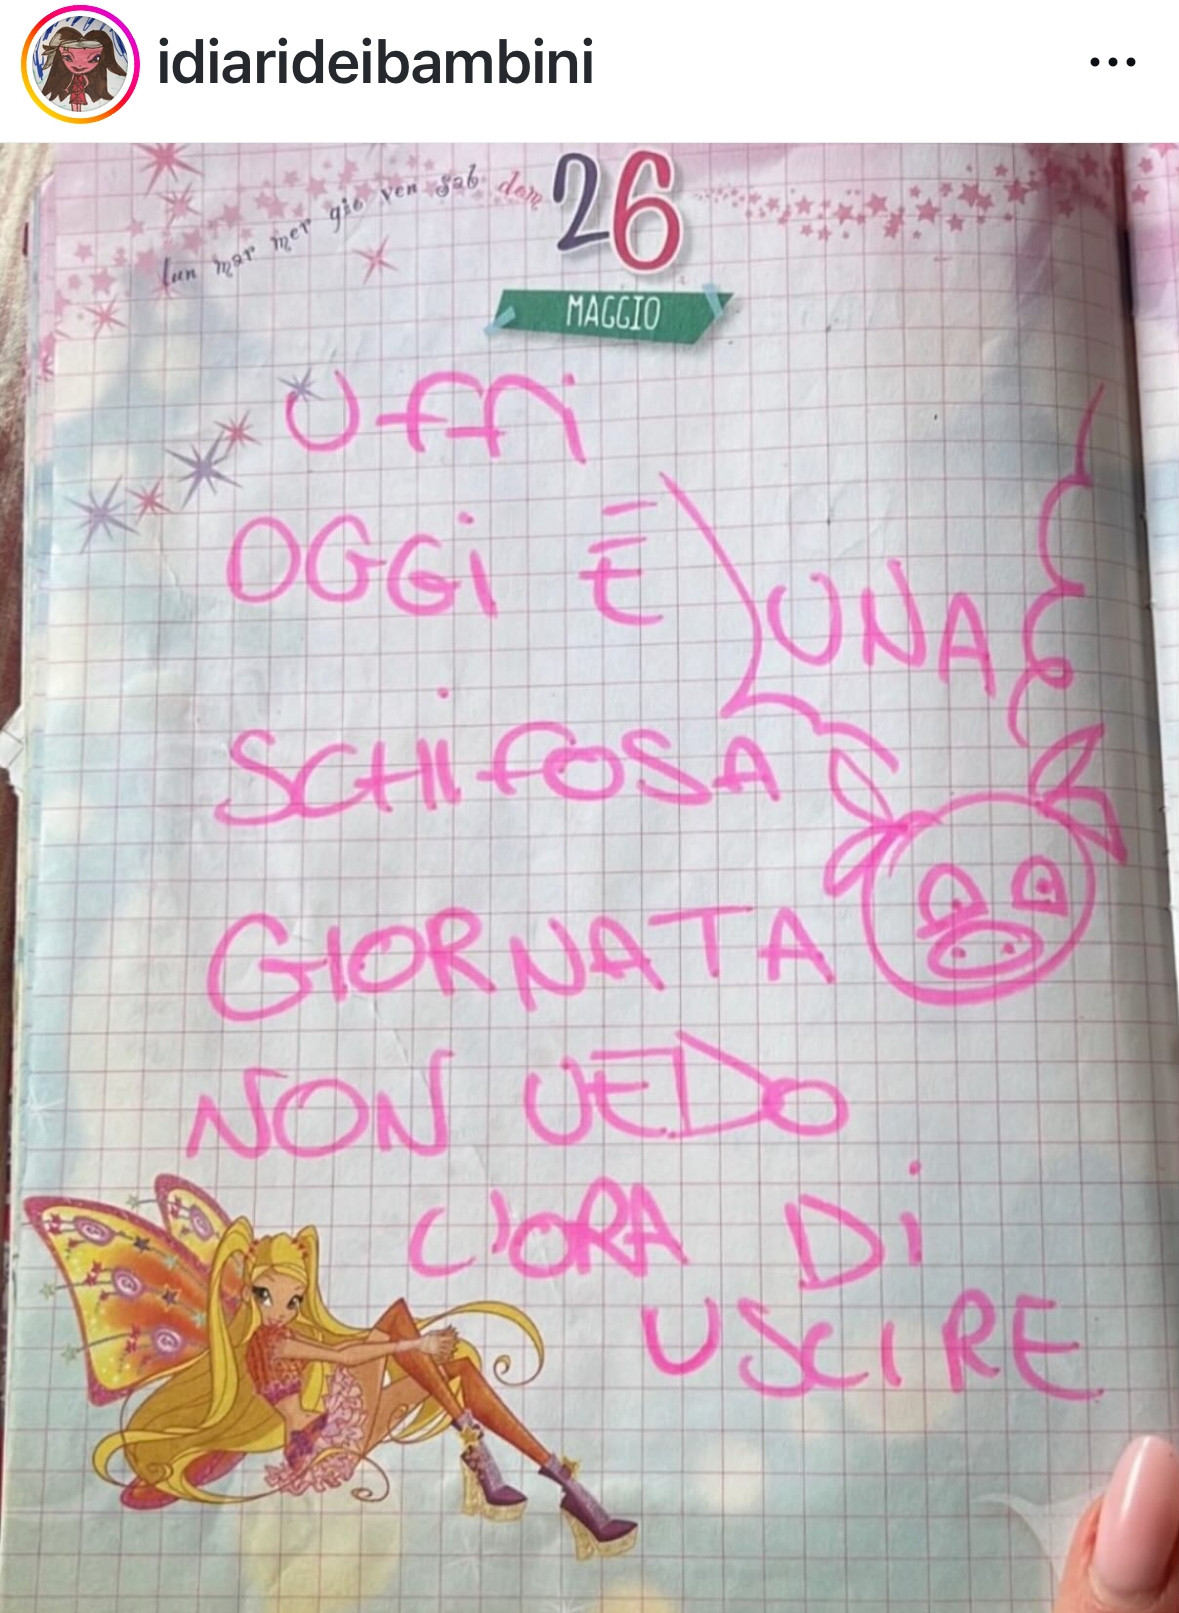 idiarideibambini
lun mar mer gio ven sab dom
26
MAGGIO
Uffi
OGGi È UNA
SCHIFOSA
GIORNATA
NON VEDO
L'ORA Di
USCIRE